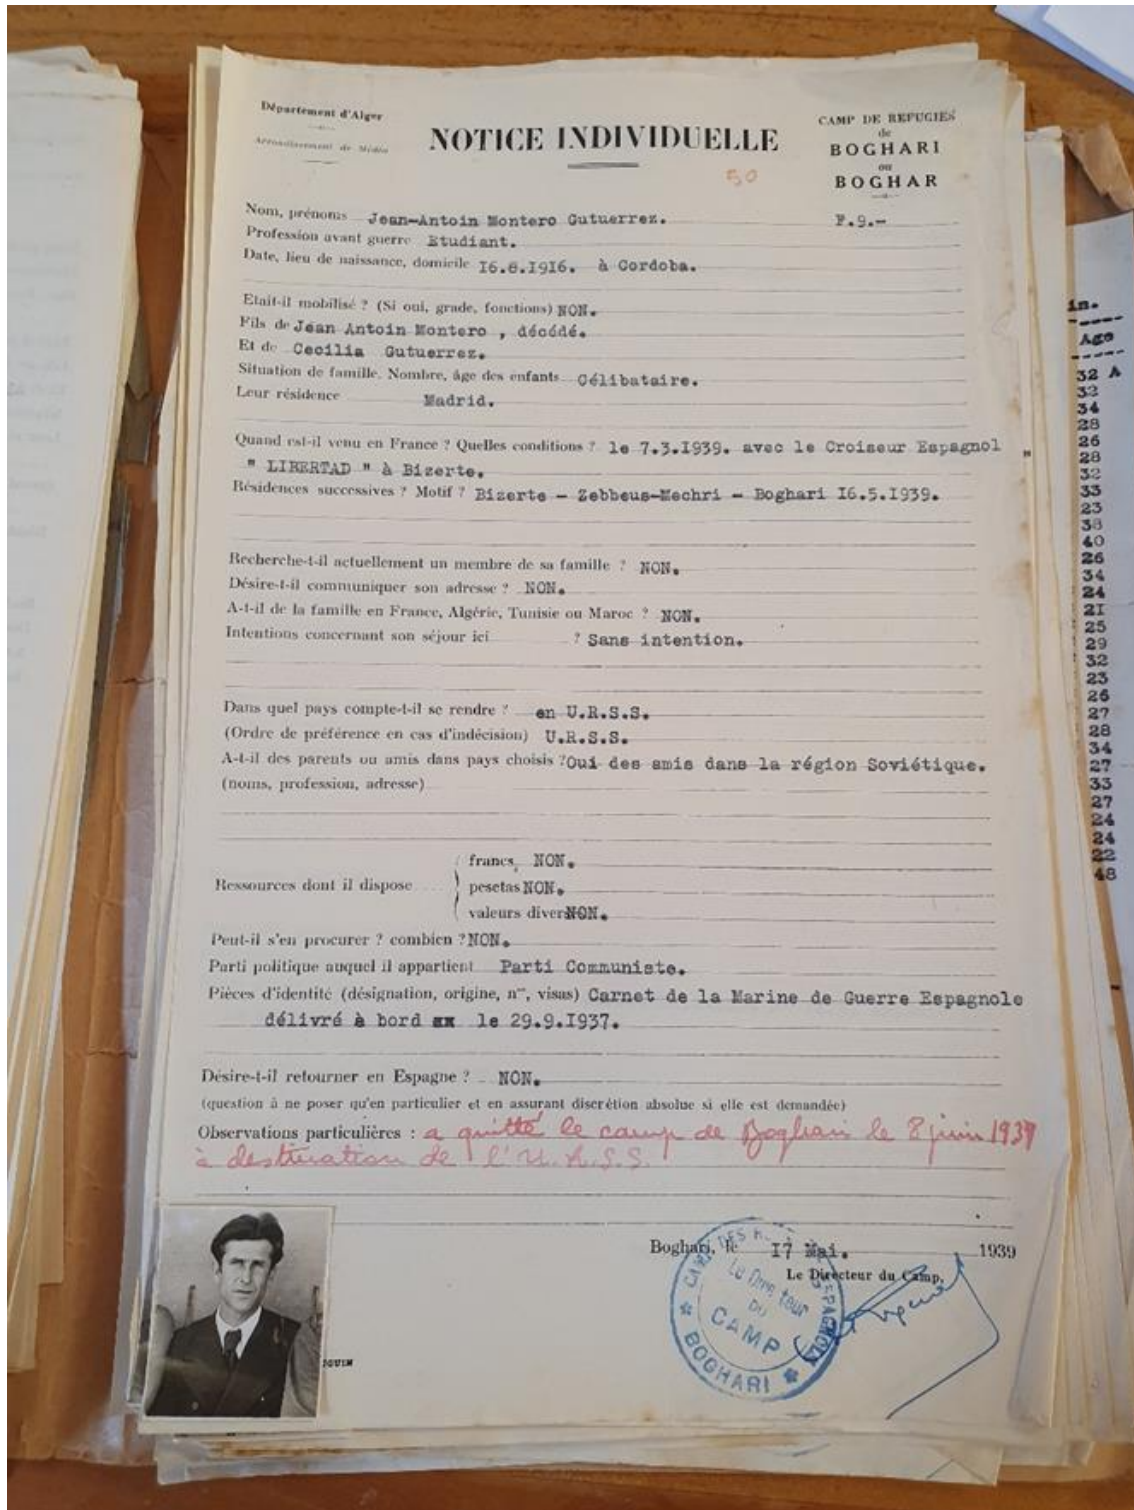 Département d'Alger
Arrondissement de Médéa
NOTICE INDIVIDUELLE
50
CAMP DE REFUGIES
de
BOGHARI
ou
BOGHAR
Nom, prénoms Jean-Antoin Montero Gutuerrez. F.9.-
Profession avant guerre Etudiant.
Date, lieu de naissance, domicile I6.8.I9I6. à Cordoba.
Etait-il mobilisé ? (Si oui, grade, fonctions) NON.
Fils de Jean Antoin Montero , décédé.
Et de Cecilia Gutuerrez.
Situation de famille. Nombre, âge des enfants Célibataire.
Leur résidence Madrid.
Quand est-il venu en France ? Quelles conditions ? le 7.3.I939. avec le Croiseur Espagnol
" LIBERTAD " à Bizerte.
Résidences successives ? Motif ? Bizerte - Zebbeus-Mechri - Boghari I6.5.I939.
Recherche-t-il actuellement un membre de sa famille ? NON.
Désire-t-il communiquer son adresse ? NON.
A-t-il de la famille en France, Algérie, Tunisie ou Maroc ? NON.
Intentions concernant son séjour ici ? Sans intention.
Dans quel pays compte-t-il se rendre ? en U.R.S.S.
(Ordre de préférence en cas d'indécision) U.R.S.S.
A-t-il des parents ou amis dans pays choisis ? Oui des amis dans la région Soviétique.
(noms, profession, adresse)
francs, NON.
Ressources dont il dispose pesetas NON.
valeurs divers NON.
Peut-il s'en procurer ? combien ? NON.
Parti politique auquel il appartient Parti Communiste.
Pièces d'identité (désignation, origine, nos, visas) Carnet de la Marine de Guerre Espagnole
délivré à bord xx le 29.9.I937.
Désire-t-il retourner en Espagne ? NON.
(question à ne poser qu'en particulier et en assurant discrétion absolue si elle est demandée)
Observations particulières : a quitté le camp de Boghari le 8 juin 1939
à destination de l'U.R.S.S.
Boghari, le I7 Mai. 1939
Le Directeur du Camp,
CAMP DES ESPAGNOLS
Le Directeur
DU
CAMP
BOGHARI
in.
Age
32 A
32
34
28
26
28
32
33
23
38
40
26
34
24
2I
25
29
32
23
26
27
28
34
27
33
27
24
24
22
48